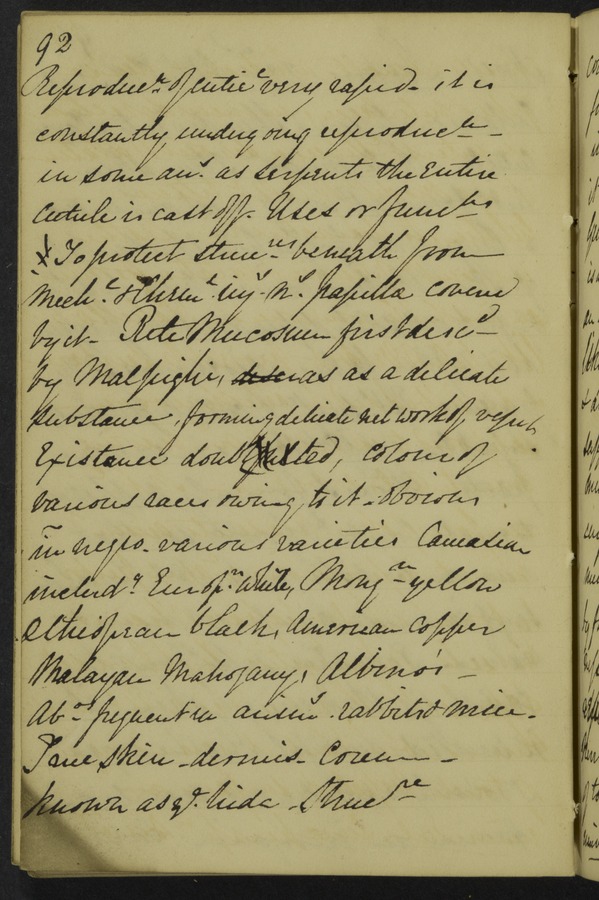 92
Reproducn. of cuticle very rapid - it is
constantly undergoing reproductn -
in some ans. as serpents the entire
Cuticle is cast off - Uses or functns
x To protect strucres beneath from
Mechl. & Cheml. injy. ns. papilla covered
by it - Rete Mucosum first descd -
by Malpighi, as a delicate
substance, forming delicate net work of vessels
Existence doubted, colour of
various races owing to it - obvious
in negro - various varieties Caucasian
includg Europn. White, Mongn - yellow
Ethiopean black, American copper
Malayan Mahogany, Albino's -
Abce frequent in animls. rabbits & mice -
True skin - dermis - Corium -
known as hide - Structre